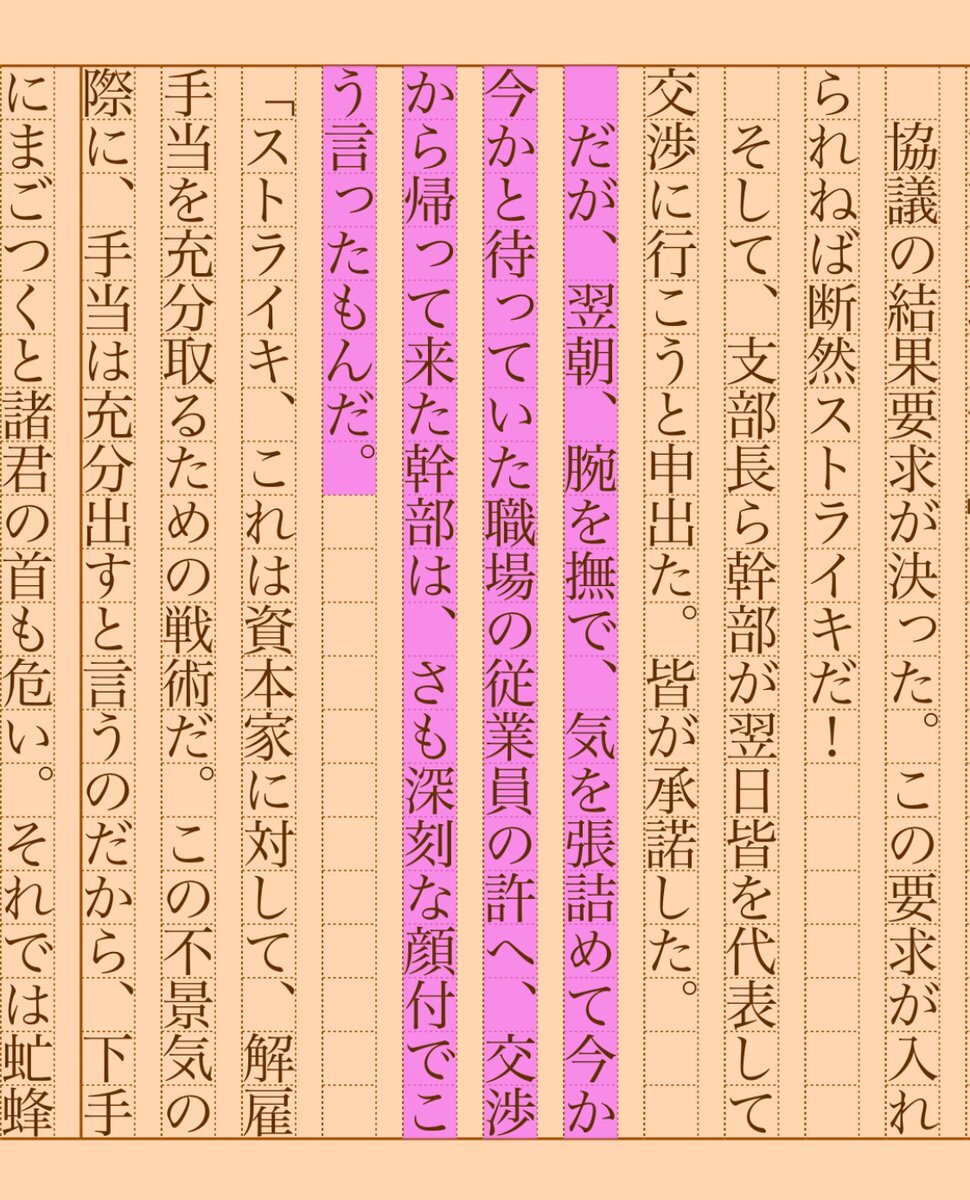 協議の結果要求が決った。この要求が入れ
られねば断然ストライキだ！
　そして、支部長ら幹部が翌日皆を代表して
交渉に行こうと申出た。皆が承諾した。
　だが、翌朝、腕を撫で、気を張詰めて今か
今かと待っていた職場の従業員の許へ、交渉
から帰って来た幹部は、さも深刻な顔付でこ
う言ったもんだ。
「ストライキ、これは資本家に対して、解雇
手当を充分取るための戦術だ。この不景気の
際に、手当は充分出すと言うのだから、下手
にまごつくと諸君の首も危い。それでは虻蜂